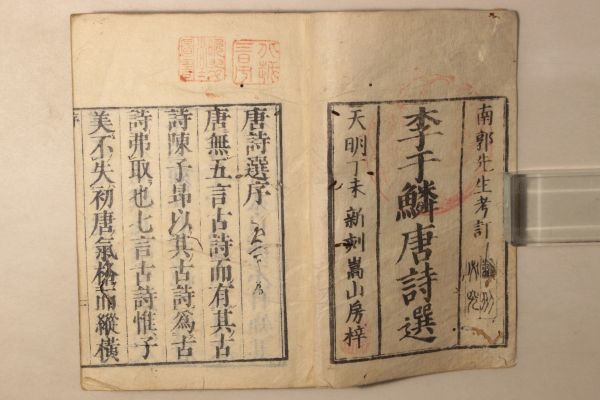 南郭先生考訂
李于鱗唐詩選
天明丁未 新刻嵩山房梓
唐詩選序
唐無五言古詩而有其古
詩陳子昻以其古詩爲古
詩弗取也七言古詩惟子
美不失初唐氣格而縱橫